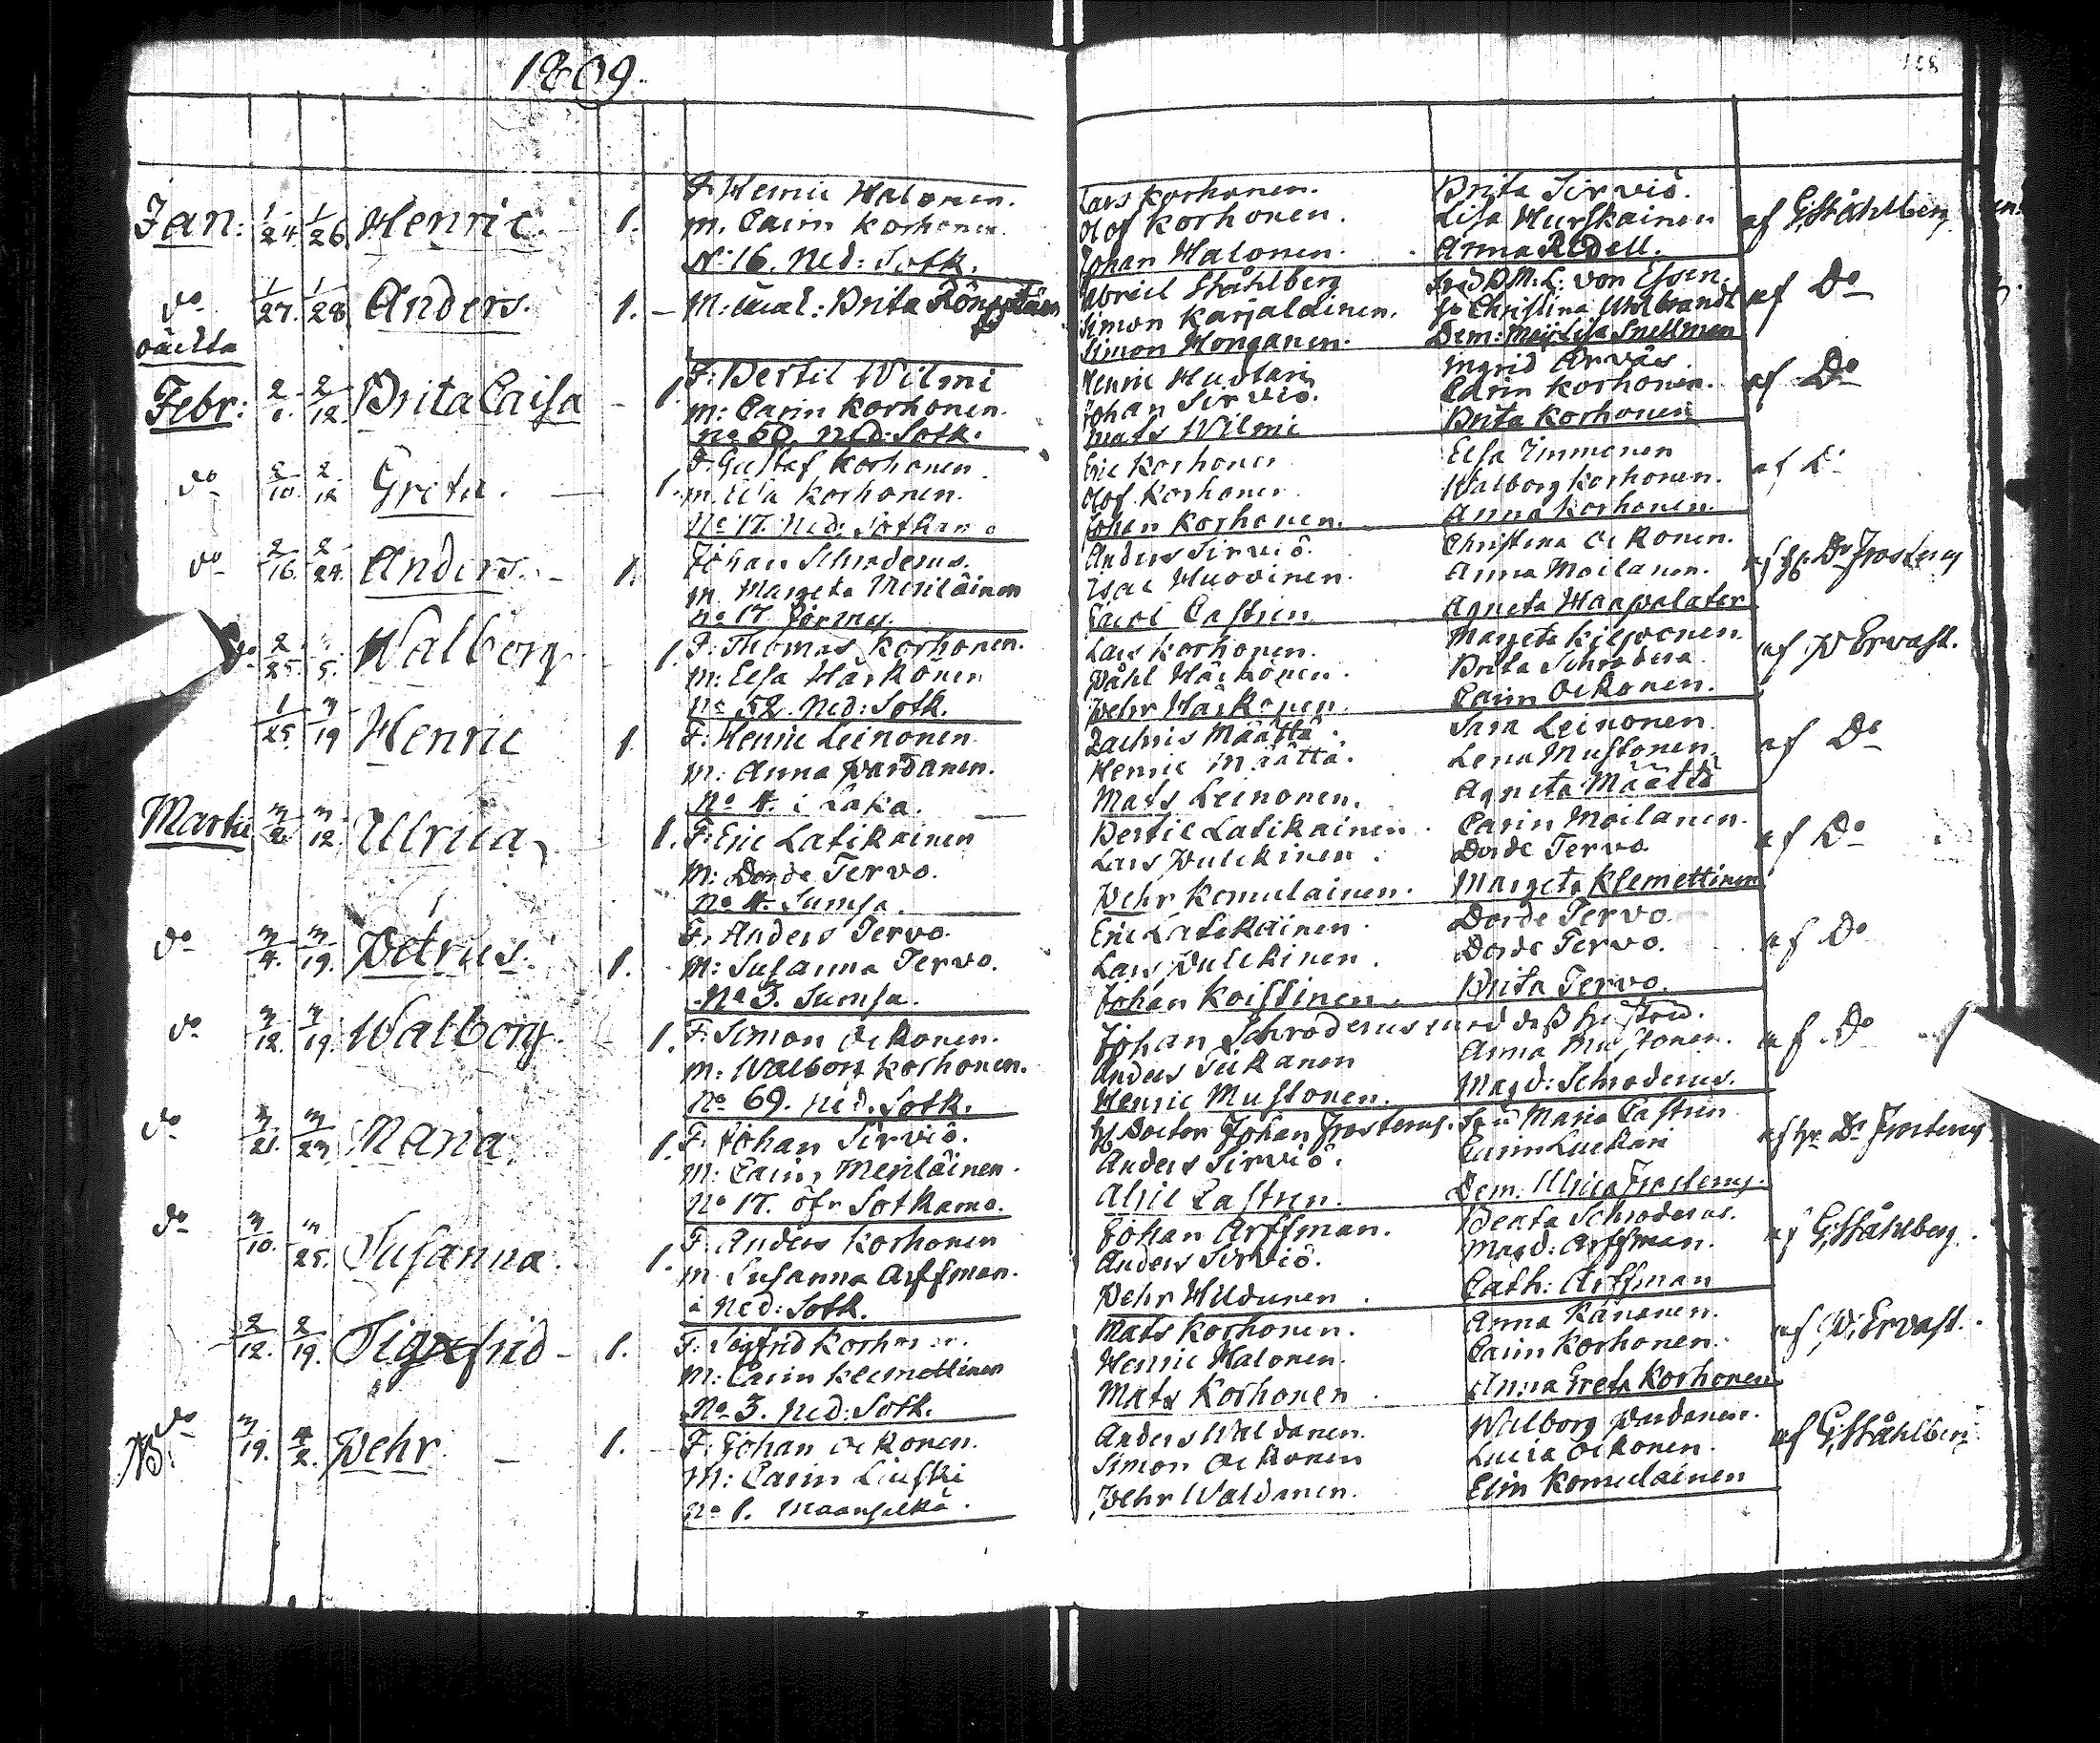 1809.
158
Jan: 1/24. 1/26. Henric 1. F. Henric Halonen. Lars Korhonen. Brita Sirviö. af G; Ståhlberg
m. Carin Korhonen. Olof Korhonen. Lisa Hurskainen
No 16. Ned: Sotk. Johan Halonen. Anna Redell.
do 1/27. 1/28 Anders. 1. M: Brita Gabriel Ståhlberg von Essen. af Do
oäckta Simon Karjalainen. Christina Whlbrandt
Simon Honganen. Dem: Maj Lisa Snellman
Febr: 2/1. 2/12. Brita Caisa 1. F: Bertil Wilmi Henric Huotari Ingrid Arvås. af Do
m: Carin Korhonen. Johan Sirviö. Carin Korhonen.
No 50. Ned: Sotk. Mats Wilmi Brita Korhonen
do 2/10. 2/12 Greta. 1. F. Gustaf Korhonen Eric Korhonen Elsa Immonen af Do
m. Elsa Korhonen. Olof Korhonen Walborg Korhonen.
No 17. Ned: Sotkamo Johan Korhonen. Anna Korhonen.
do 2/16. 2/24. Anders. 1. Johan Schroderus. Anders Sirviö. Christina Ockonen. af Hr Dr Frosterus
m. Margeta Meriläinen Isac Huovinen. Anna Moilanen.
No 17 Jormus. Carol Castren Agneta Haapalater
do 2/25. 3/5. Walborg 1. F. Thomas Korhonen. Lars Korhonen. Margeta Kilponen. af P Ervast.
m: Elsa Härkönen Påhl Härkönen. Brita Schrodera
No 52. Ned: Sotk. Pehr Härkönen. Carin Ockonen.
1/25. 3/19 Henric 1. F: Henric Leinonen. Zachris Määttä. Sara Leinonen. af Do
m: Anna Pardanen. Henric Määttä. Lena Mustonen.
No 4. i Laka. Mats Leinonen. Agneta Määttä
Martii 3/2. 3/12. Ulrica 1. F. Eric Latikainen Bertil Latikainen. Carin Moilanen. af Do
M: Dorde Tervo. Lars Pulckinen. Dorde Tervo
No 4. Sumsa. Pehr Komulainen. Margeta Klemettinen
do 3/4. 3/19. Petrus. 1. F. Anders Tervo. Eric Latikainen. Dorde Tervo. af Do
M: Susanna Tervo. Lars Pulckinen. Dorde Tervo.
No 3. Sumsa. Johan Koistinen. Brita Tervo.
do 3/12. 3/19. Walborg. 1. F. Simon Ockonen. Johan Schroderus med dess hustru. af Do
m: Walborg Korhonen. Anders Tiikanen Anna Mustonen.
No 69. Ned. Sotk. Henric Mustonen. Magd: Schroderus.
do 3/21. 3/23 Maria. 1. F. Johan Sirviö. Hr Doctor Johan Frosterus. Fru Maria Castren af Hr Dr Frosterus
M: Carin Meriläinen. Anders Sirviö. Carin Luckari
No 17. öfr Sotkamo. Alric Castren. Dem. Ulrica Frosterus.
do 3/10. 3/25. Susanna 1. F. Anders Korhonen Johan Arffman. Beata Schroderus. af G; Ståhlberg.
m Susanna Arffman. Anders Sirviö. Magd: Arffman.
i Ned: Sotk. Pehr Hildunen. Cath: Arffman
2/12. 2/19. Sigfrid 1. F. Sigfrid Korhonen. Mats Korhonen. Anna Känanen. af P. Ervast.
M: Carin Klemettinen Henric Halonen. Carin Korhonen.
No 3. Ned: Sotk. Mats Korhonen. Anna Greta Korhonen
do 3/19. 4/2. Pehr 1. F. Johan Ockonen. Anders Waldanen. Walborg Pardanen. af G; Ståhlberg.
NB. M: Carin Liuski Simon Ockonen Lucia Ockonen.
No 1. Maanselkä. Pehr Waldanen. Elin Komulainen